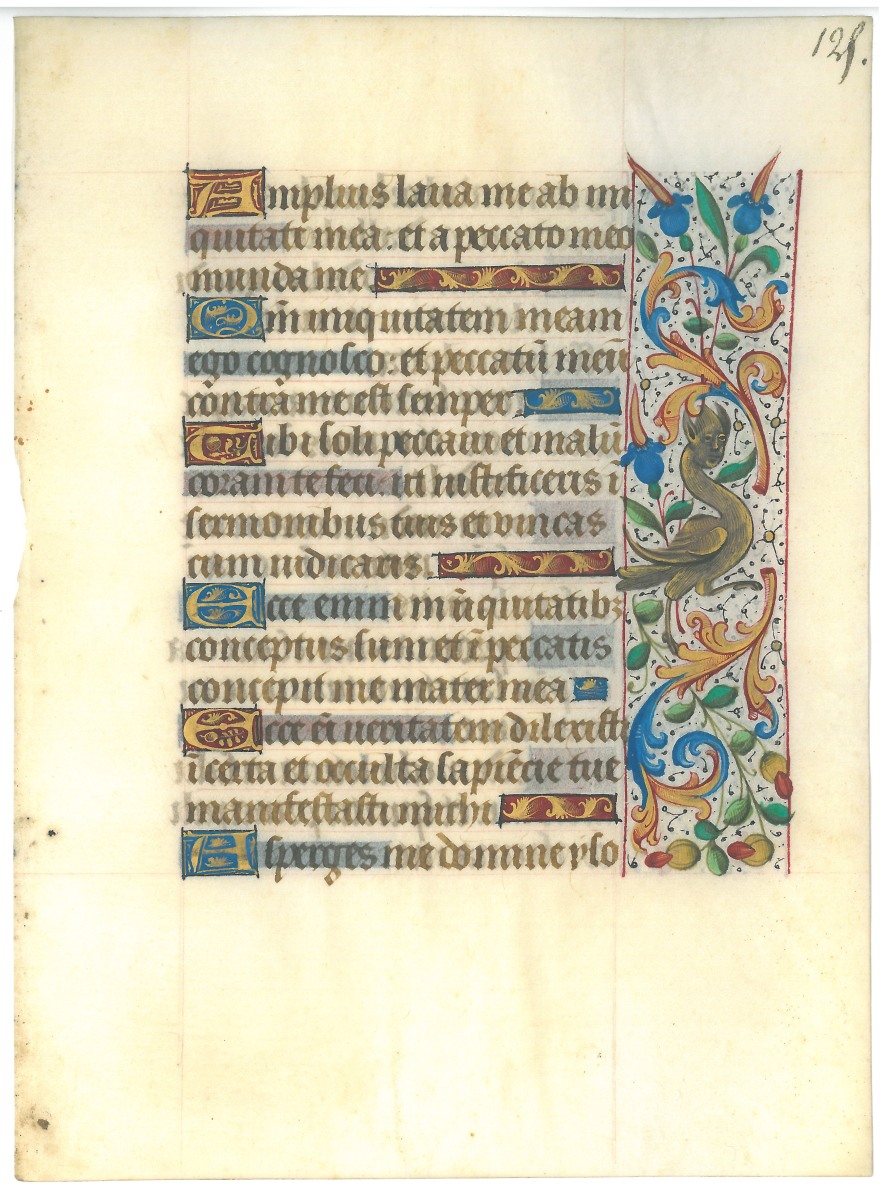 125.
Amplius laua me ab ini
quitate mea: et a peccato meo
munda me
Qm̄ iniquitatem meam
ego cognosco: et peccatū meū
contra me est semper
Tibi soli peccaui et malū
coram te feci: ut iustificeris i
sermonibus tuis et vincas
cum iudicaris
Ecce enim in iniquitatibꝫ
conceptus sum et ī peccatis
concepit me mater mea
Ecce ei̅ ueritatem dilexisti
īcerta et occulta sapiēcie tue
manifestasti michi
Asperges me domine yso